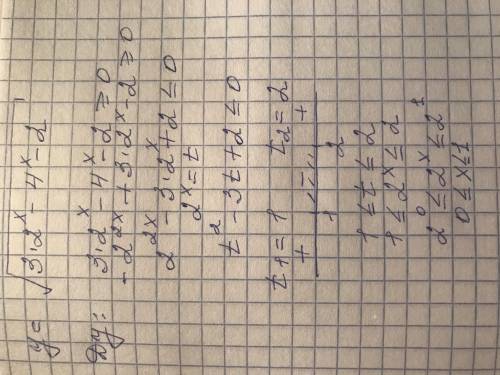 y = √(3·2^x - 4^x - 2)
Dy: 3·2^x - 4^x - 2 ≥ 0
-2^2x + 3·2^x - 2 ≥ 0
2^2x - 3·2^x + 2 ≤ 0
2^x = t
t² - 3t + 2 ≤ 0
t₁ = 1 t₂ = 2
+ - +
1 2
1 ≤ t ≤ 2
1 ≤ 2^x ≤ 2
2^0 ≤ 2^x ≤ 2^1
0 ≤ x ≤ 1